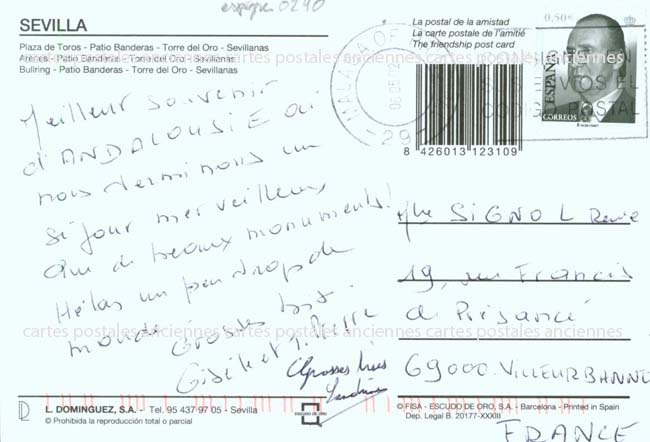 espagne 0240
SEVILLA
Plaza de Toros - Patio Banderas - Torre del Oro - Sevillanas
Arènes - Patio Banderas - Torre del Oro - Sevillanas
Bullring - Patio Banderas - Torre del Oro - Sevillanas
La postal de la amistad
La carte postale de l'amitié
The friendship post card
0,50€
ESPAÑA
CORREOS
MALAGA
06 05
-29-
POSTAL
8 426013 123109
cartes postales anciennes cartes postales anciennes
Meilleur souvenir
d'ANDALOUSIE où
nous terminons un
séjour merveilleux
de beaux monuments!
Hélas un peu trop de
monde Grosses
Gisèle et
Grosses bises
SIGNOL
19, rue Francis
de Pressensé
69000 VILLEURBANNE
FRANCE
cartes postales anciennes cartes postales anciennes
L. DOMINGUEZ, S.A. - Tel. 95 437 97 05 - Sevilla
© Prohibida la reproducción total o parcial
ESCUDO DE ORO
© FISA - ESCUDO DE ORO, S.A. - Barcelona - Printed in Spain
Dep. Legal B. 20177-XXXIII